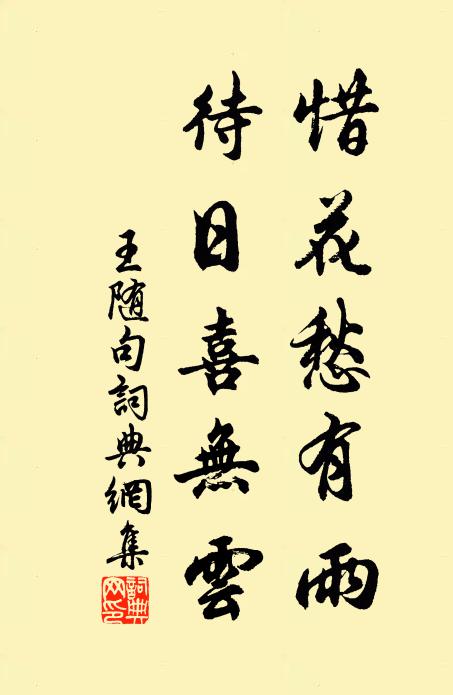 惜花愁有雨
待日喜無雲
王随句詞典網集
詞典
网